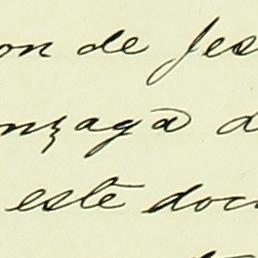 on de Jes
onzaga d
este doc